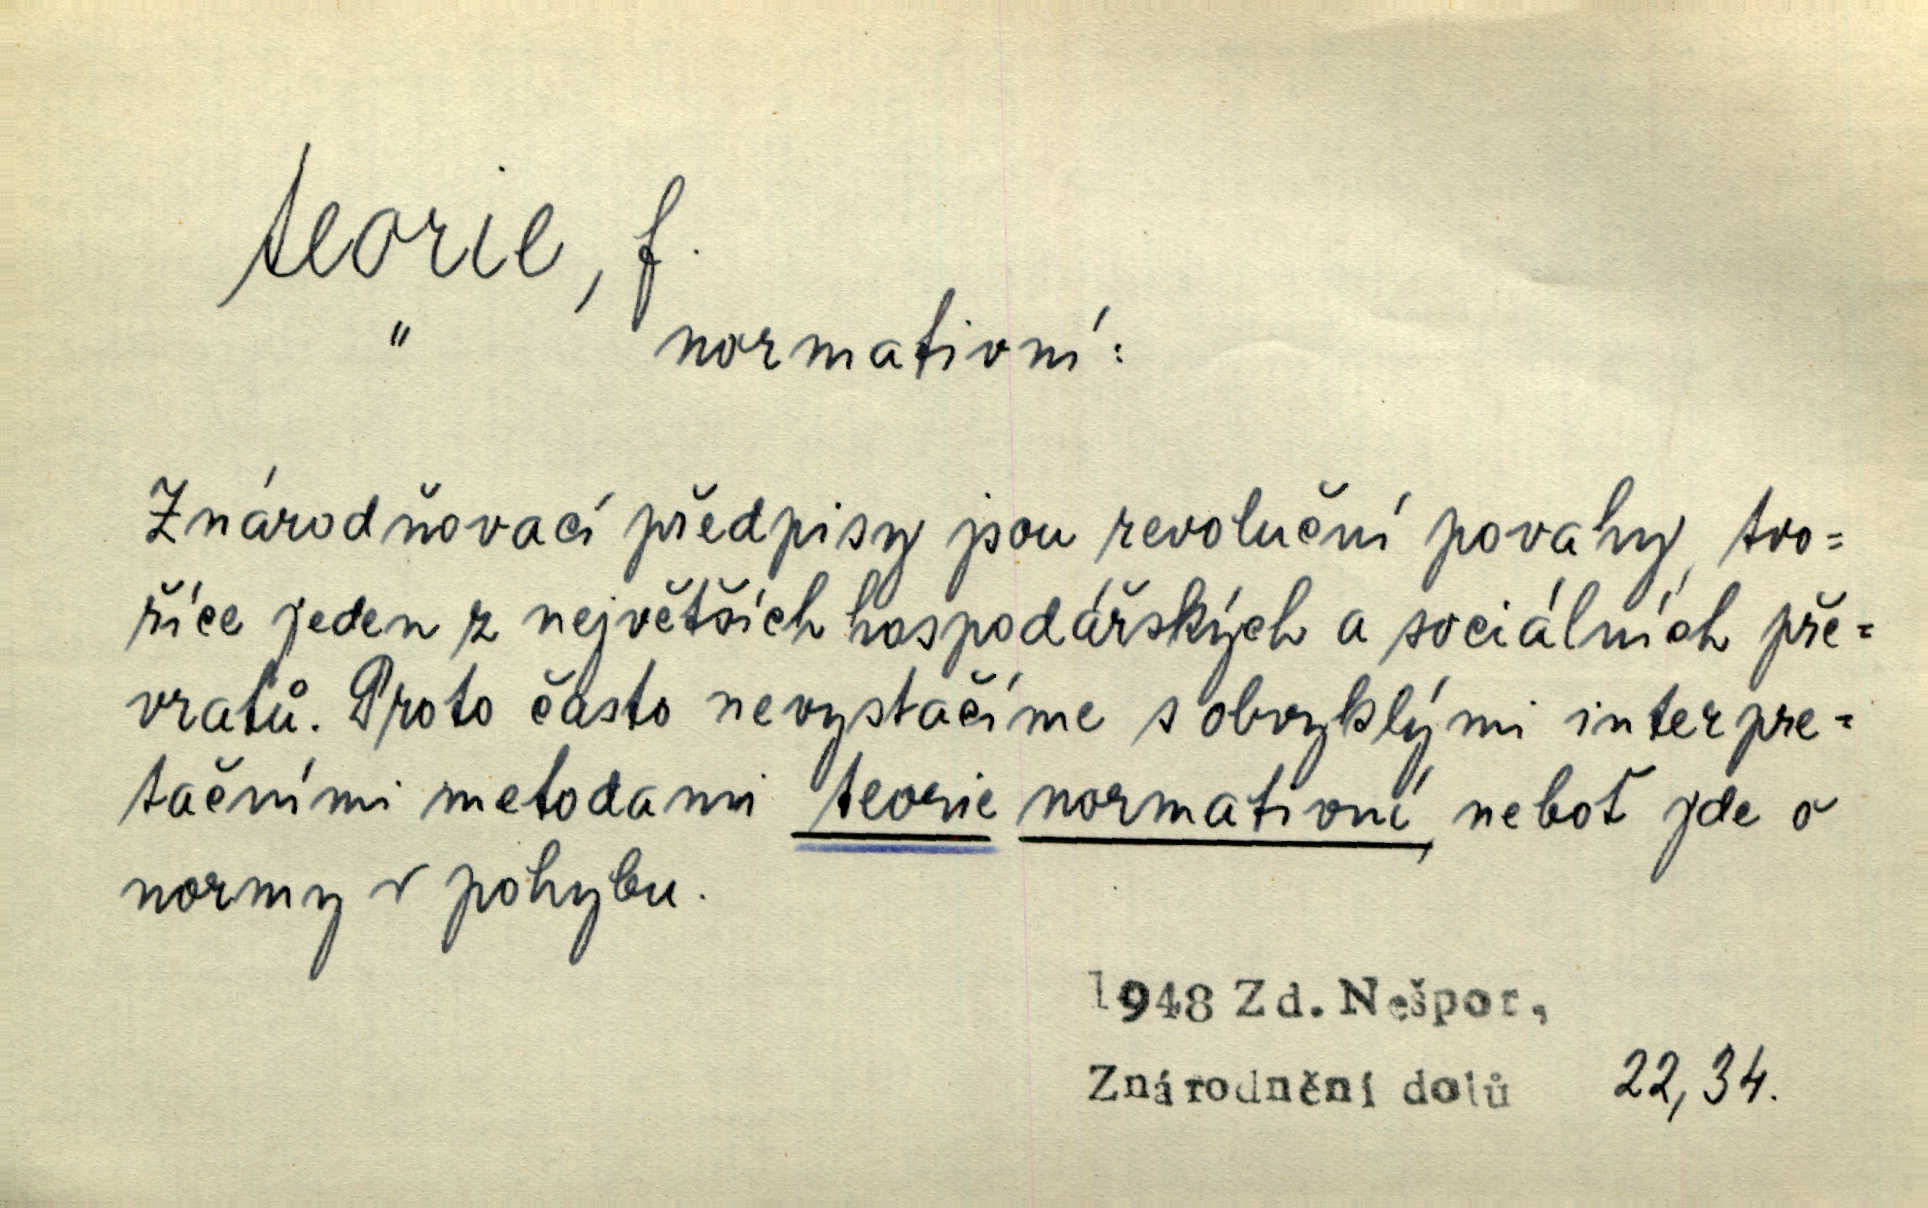 teorie, f.
" normativní:
Znárodňovací předpisy jsou revoluční povahy, tvo=
říce jeden z největších hospodářských a sociálních pře=
vratů. Proto často nevystačíme s obvyklými interpre=
tačními metodami teorie normativní, neboť jde o
normy v pohybu.
1948 Zd. Nešpor,
Znárodnění dolů 22, 34.